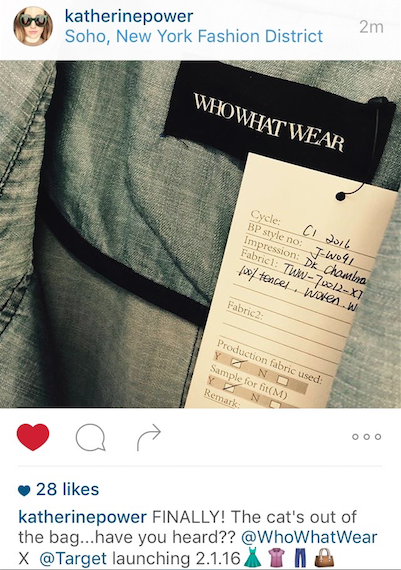 katherinepower
Soho, New York Fashion District
2m
WHO WHAT WEAR
Cycle: C1 2016
BP style no: J-W091
Impression: Dk Chambra
Fabric1: TWW-70012-X7
100% tencel, Woven, W
Fabric2:
Production fabric used:
Y N
Sample for fit(M)
Y N
Remark:
28 likes
katherinepower FINALLY! The cat's out of
the bag...have you heard?? @WhoWhatWear
X @Target launching 2.1.16👗👚👖👜